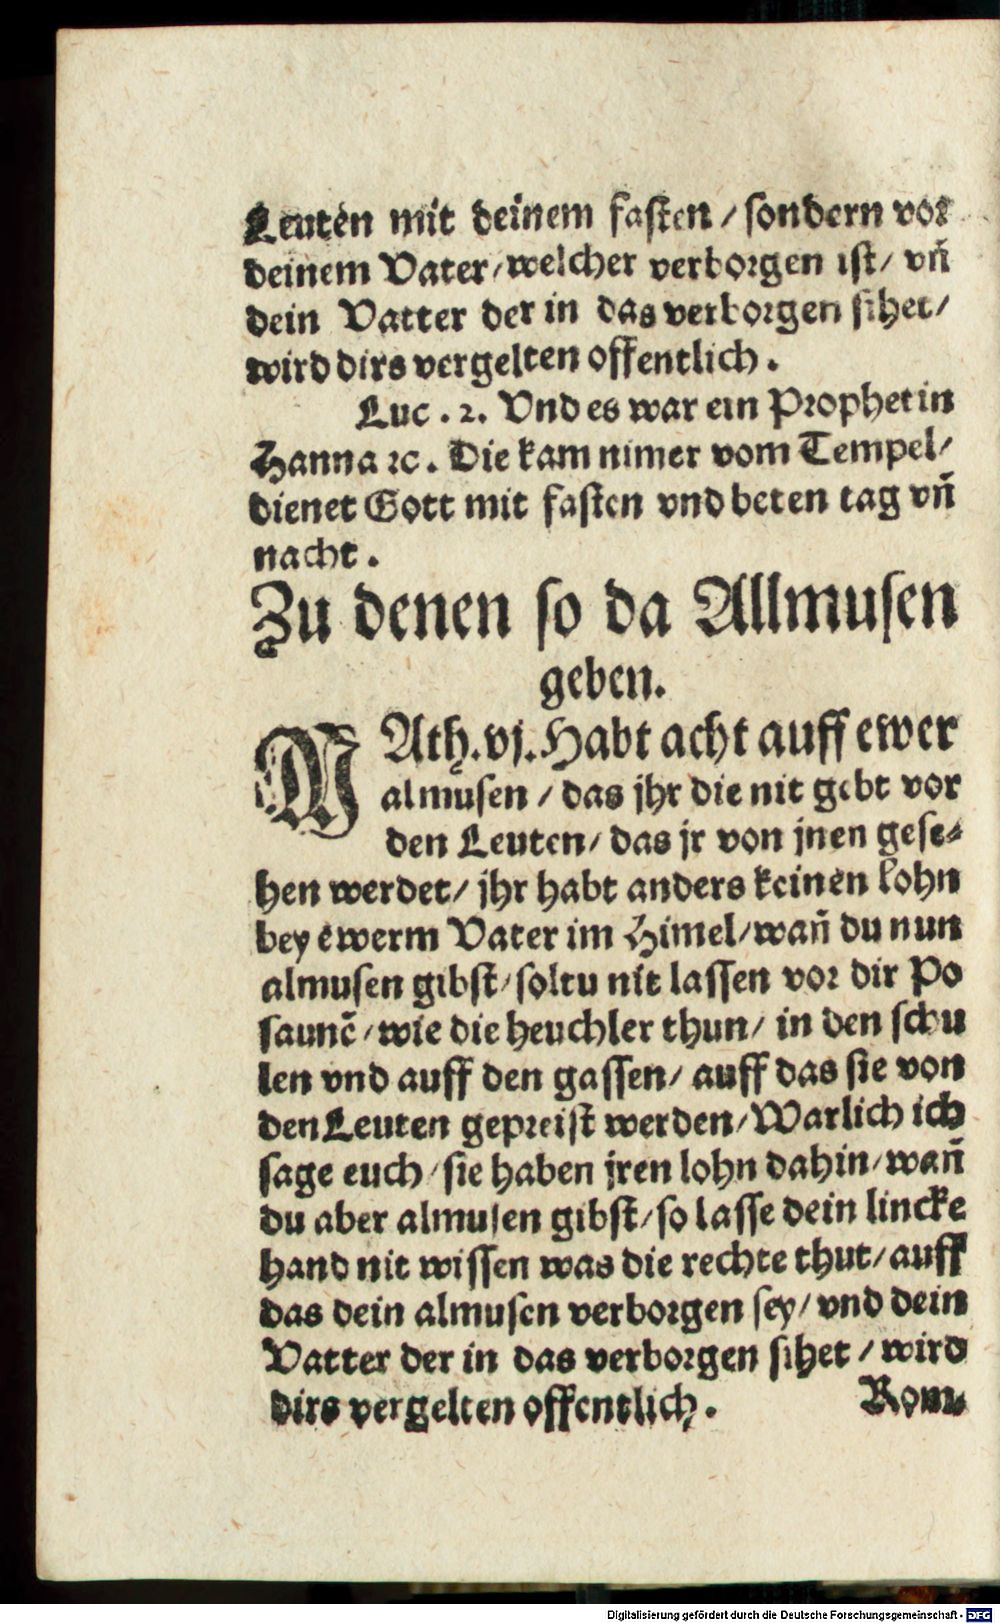 Leuten mit deinem fasten / sondern vor
deinem Vater / welcher verborgen ist / vñ
dein Vatter der in das verborgen sihet /
wird dirs vergelten offentlich.
Luc. 2. Vnd es war ein Prophetin
Hanna ꝛc. Die kam nimer vom Tempel /
dienet Gott mit fasten vnd beten tag vñ
nacht.
Zu denen so da Allmusen
geben.
MAth. vj. Habt acht auff ewer
almusen / das jhr die nit gebt vor
den Leuten / das jr von jnen gese-
hen werdet / jhr habt anders keinen lohn
bey ewerm Vater im Himel / wañ du nun
almusen gibst / soltu nit lassen vor dir Po
saunē / wie die heuchler thun / in den schu
len vnd auff den gassen / auff das sie von
den Leuten gepreist werden / Warlich ich
sage euch / sie haben jren lohn dahin / wañ
du aber almusen gibst / so lasse dein lincke
hand nit wissen was die rechte thut / auff
das dein almusen verborgen sey / vnd dein
Vatter der in das verborgen sihet / wird
dirs vergelten offentlich. Rom.
Digitalisierung gefördert durch die Deutsche Forschungsgemeinschaft - DFG